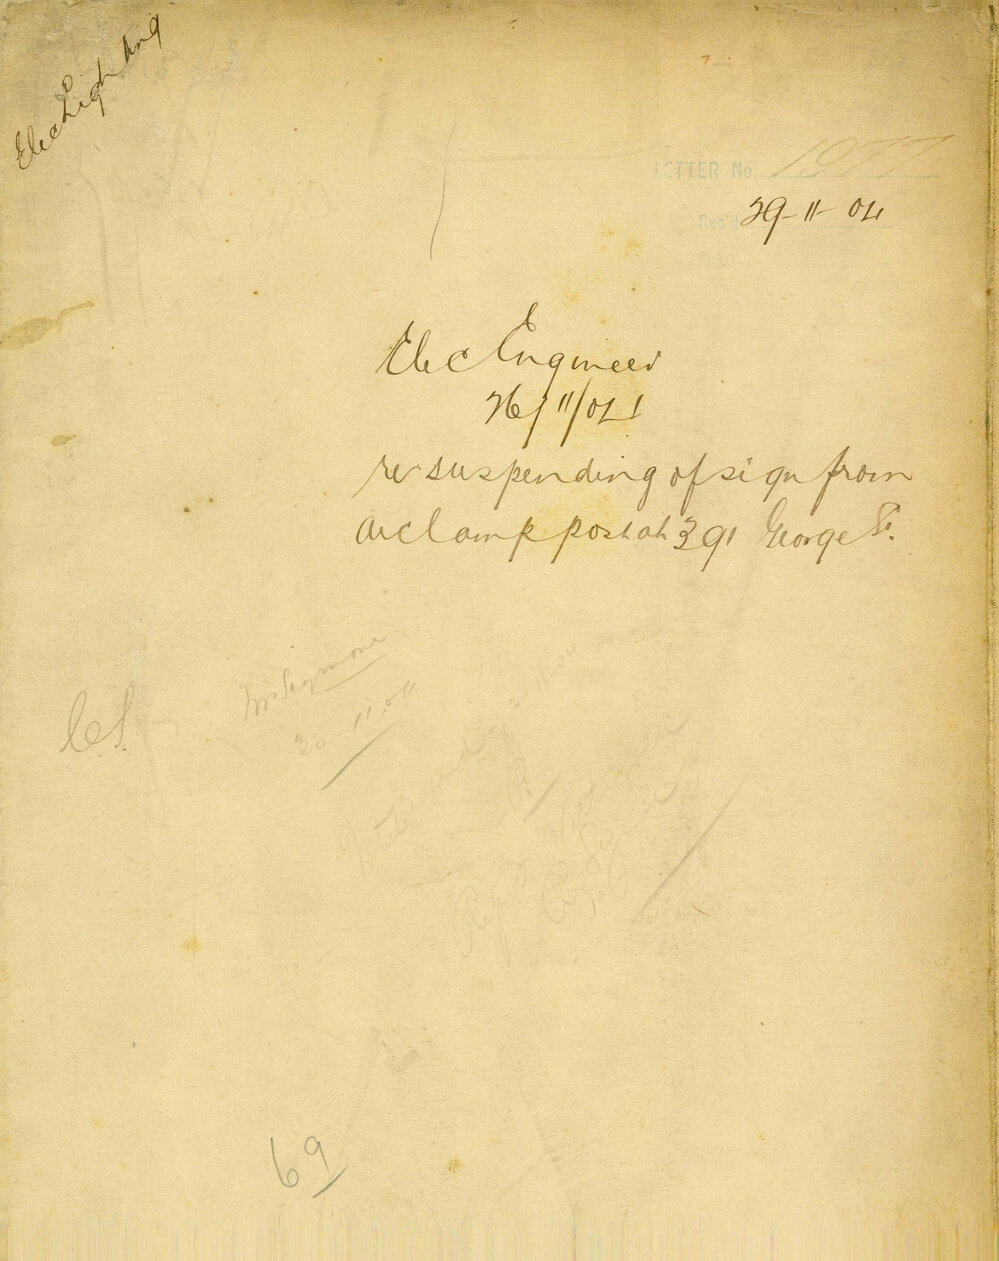 Elec Lighting
LETTER No. 1977
Rec'd 29-11-04
Elec Engineer
26/11/04
re suspending of sign from
arc lamp post at 391 George St.
Mr Seymour
30.11.04
C.S.
69